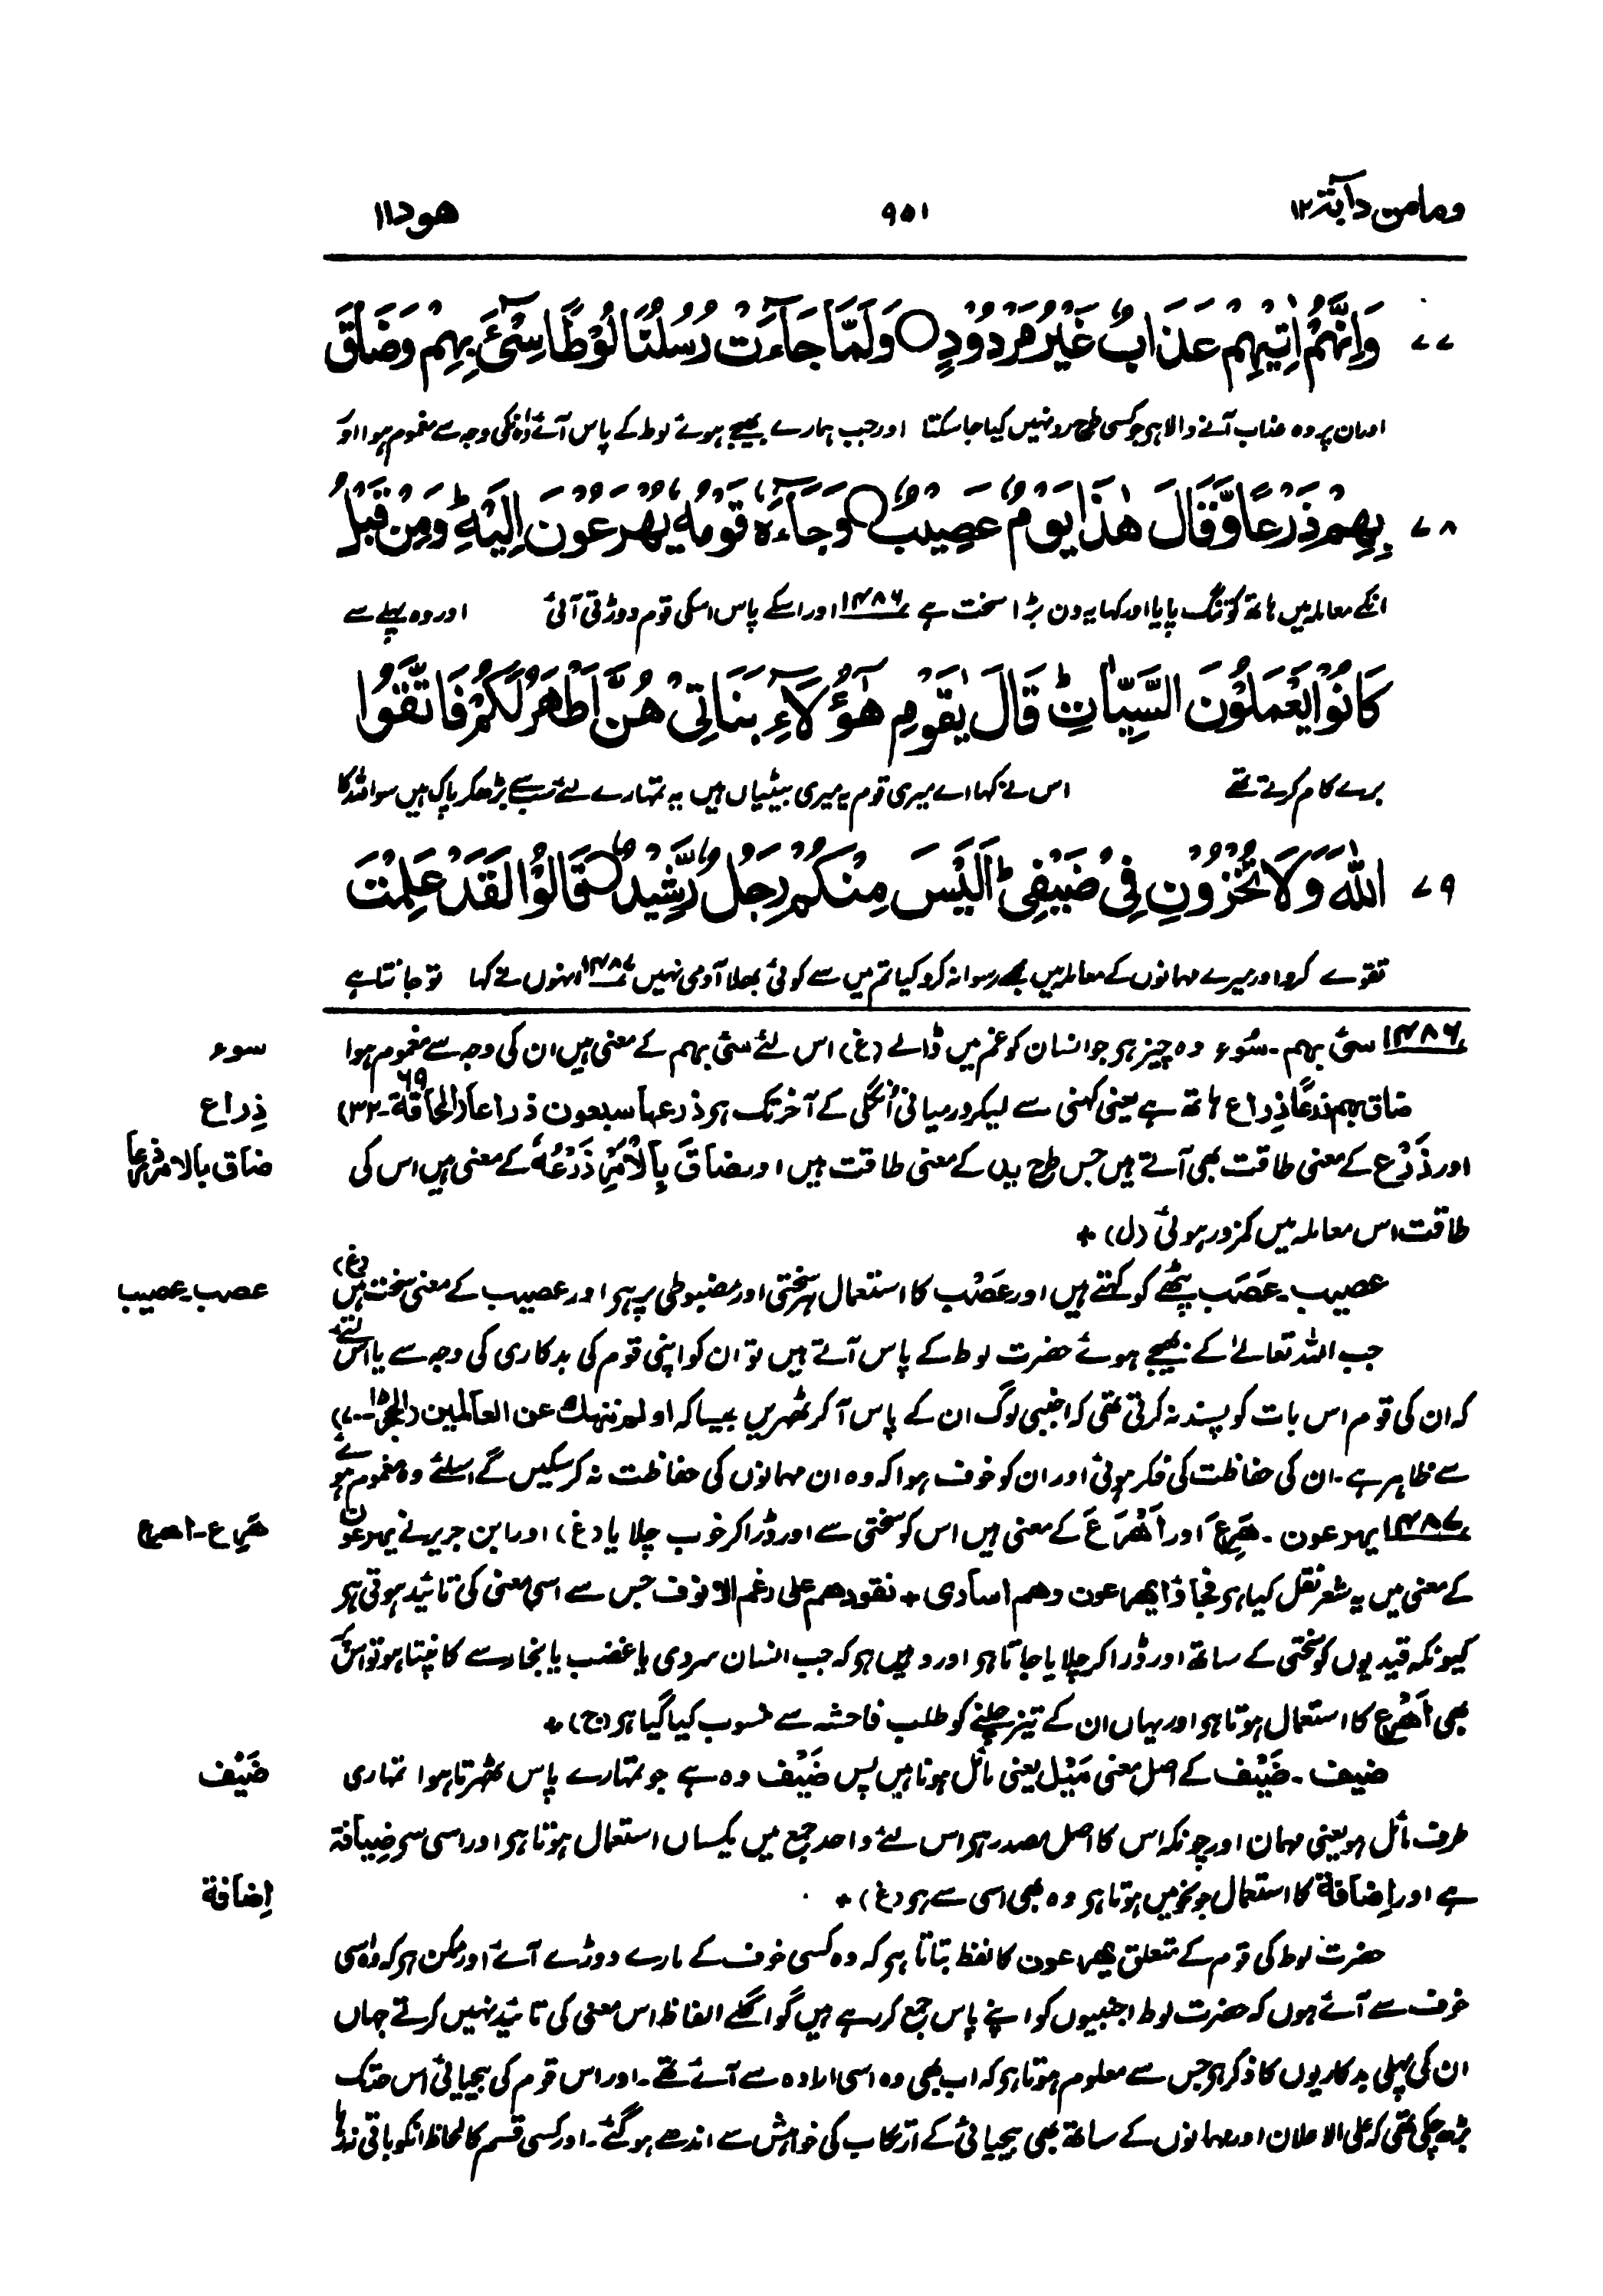 ومامن دآبة ١٢ ٩٥١ هود ١١
٧٧ وَاِنَّهُمْ اٰتِيْهِمْ عَذَابٌ غَيْرُ مَرْدُوْدٍ ○ وَلَمَّا جَآءَتْ رُسُلُنَا لُوْطًا سِیْٓئَ بِهِمْ وَضَاقَ
اور ان پر وہ عذاب آنے والا ہی جو کسی طرح رد نہیں کیا جاسکتا اور جب ہمارے بھیجے ہوئے لوط کے پاس آئے وہ انکی وجہ سے مغموم ہوا اور
٧٨ بِهِمْ ذَرْعًا وَّقَالَ هٰذَا يَوْمٌ عَصِيْبٌ ○ وَجَآءَهٗ قَوْمُهٗ يُهْرَعُوْنَ اِلَيْهِ ؕ وَمِنْ قَبْلُ
انکے معاملہ میں ہاتھ کو تنگ پایا اور کہا یہ دن بڑا سخت ہے ۱۴۸۶ اور اسکے پاس اسکی قوم دوڑتی آئی اور وہ پہلے سے
كَانُوْا يَعْمَلُوْنَ السَّيِّاٰتِ ؕ قَالَ يٰقَوْمِ هٰٓؤُلَآءِ بَنَاتِيْ هُنَّ اَطْهَرُ لَكُمْ فَاتَّقُوا
برے کام کرتے تھے اس نے کہا اے میری قوم یہ میری بیٹیاں ہیں یہ تمہارے لئے سب سے بڑھکر پاک ہیں سو اللہ کا
٧٩ اللّٰهَ وَلَا تُخْزُوْنِ فِيْ ضَيْفِيْ ؕ اَلَيْسَ مِنْكُمْ رَجُلٌ رَّشِيْدٌ ○ قَالُوْا لَقَدْ عَلِمْتَ
تقوے کرو اور میرے مہمانوں کے معاملہ میں مجھے رسوا نہ کرو کیا تم میں سے کوئی بھلا آدمی نہیں ۱۴۸۷ انہوں نے کہا تو جانتا ہے
۱۴۸۶ سئ بہم ۔ سُوء وہ چیز ہی جو انسان کو غم میں ڈالے (غ) اس لئے سئ بہم کے معنی ہیں ان کی وجہ سے مغموم ہوا
سوء
ضاق بہم ذرعًا ذِراع ہاتھ ہے یعنی کہنی سے لیکر درمیانی اُنگلی کے آخر تک ہی ذرعہا سبعون ذراعا (الحاقة ٦٩ ۔ ۳۲)
ذِراع
اور ذَرْع کے معنی طاقت بھی آتے ہیں جس طرح ید کے معنی طاقت ہیں اور ضَاقَ بِالْاَمْرِ ذَرْعُهٗ کے معنی ہیں اس کی
ضاق بالامر ذرعا
طاقت اس معاملہ میں کمزور ہوئی (ل) +
عصیب ۔ عَصَب پٹھے کو کہتے ہیں اور عَصْب کا استعمال ہر سختی اور مضبوطی پر ہی اور عصیب کے معنی سخت ہیں (غ)
عصب ۔ عصیب
جب اللہ تعالےٰ کے بھیجے ہوئے حضرت لوط کے پاس آتے ہیں تو ان کو اپنی قوم کی بدکاری کی وجہ سے یا اس لئے
کہ ان کی قوم اس بات کو پسند نہ کرتی تھی کہ اجنبی لوگ ان کے پاس آکر ٹھہریں جیسا کہ اولم ننهك عن العالمین (الحجر ۱۵ ۔ ۷۰)
سے ظاہر ہے ۔ ان کی حفاظت کی فکر ہوئی اور ان کو خوف ہوا کہ وہ ان مہمانوں کی حفاظت نہ کرسکیں گے اسلئے وہ مغموم ہوئے
۱۴۸۷ یہرعون ۔ هَرِعَ اور اَهْرَعَ کے معنی ہیں اس کو سختی سے اور ڈرا کر خوب چلایا (غ) اور ابن جریر نے یہرعون
هَرِع ۔ اهرع
کے معنی میں یہ شعر نقل کیا ہی فجاؤا یهرعون وهم اساری + نقودهم علی رغم الانوف جس سے اسی معنی کی تائید ہوتی ہی
کیونکہ قیدیوں کو سختی کے ساتھ اور ڈرا کر چلایا جاتا ہی اور وہیں ہی کہ جب انسان سردی یا غضب یا بخار سے کانپتا ہو تو اس پر
بھی اُهْرِع کا استعمال ہوتا ہی اور یہاں ان کے تیز چلنے کو طلب فاحشہ سے منسوب کیا گیا ہی (ج) +
ضیف ۔ ضَيْف کے اصل معنی مَیْل یعنی مائل ہونا ہیں پس ضَيْف وہ ہے جو تمہارے پاس ٹھہرتا ہوا تمہاری
ضَیْف
طرف مائل ہو یعنی مہمان اور چونکہ اس کا اصل مصدر ہی اس لئے واحد جمع میں یکساں استعمال ہوتا ہی اور اسی سے ضِیافة
ہے اور اِضَافَة کا استعمال جو نحو میں ہوتا ہی وہ بھی اسی سے ہی (غ) +
اِضافة
حضرت لوط کی قوم کے متعلق یهرعون کا لفظ بتاتا ہی کہ وہ کسی خوف کے مارے دوڑے آئے اور ممکن ہی کہ وہ اسی
خوف سے آئے ہوں کہ حضرت لوط اجنبیوں کو اپنے پاس جمع کررہے ہیں گو اگلے الفاظ اس معنی کی تائید نہیں کرتے جہاں
ان کی پہلی بدکاریوں کا ذکر ہی جس سے معلوم ہوتا ہی کہ اب بھی وہ اسی ارادہ سے آئے تھے ۔ اور اس قوم کی بیحیائی اس حد تک
بڑھ چکی تھی کہ علی الاعلان اور مہمانوں کے ساتھ بھی بیحیائی کے ارتکاب کی خواہش سے اندھے ہوگئے ۔ اور کسی قسم کا لحاظ انکو باقی نہ رہا